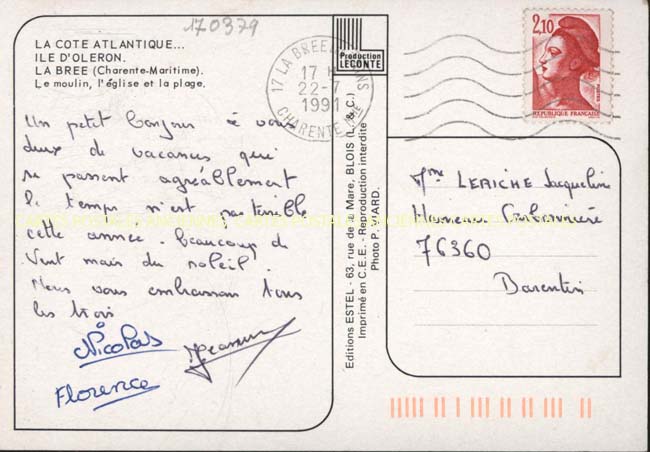 170379
LA COTE ATLANTIQUE...
ILE D'OLERON.
LA BREE (Charente-Maritime).
Le moulin, l'église et la plage.
Un petit bonjour à vous
deux de vacances qui
se passent agréablement
le temps n'est pas terrible
cette année. beaucoup de
vent mais du soleil.
Nous vous embrassons tous
les trois
Nicolas
Florence
Production
LECONTE
17 LA BREE BAINS
17 H
22-7
1991
CHARENTE Mme
2,10
REPUBLIQUE FRANÇAISE
Editions ESTEL - 63, rue de la Mare, BLOIS (L. & C.)
Imprimé en C.E.E. - Reproduction interdite
Photo P. VIARD.
Mme LERICHE Jacqueline
Hameau
76360
Barentin